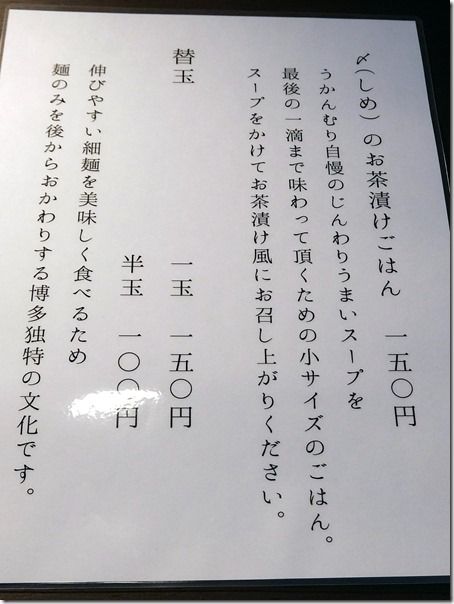 〆（しめ）のお茶漬けごはん 一五〇円
うかんむり自慢のじんわりうまいスープを
最後の一滴まで味わって頂くための小サイズのごはん。
スープをかけてお茶漬け風にお召し上がりください。
替玉 一玉 一五〇円
半玉 一〇〇円
伸びやすい細麺を美味しく食べるため
麺のみを後からおかわりする博多独特の文化です。